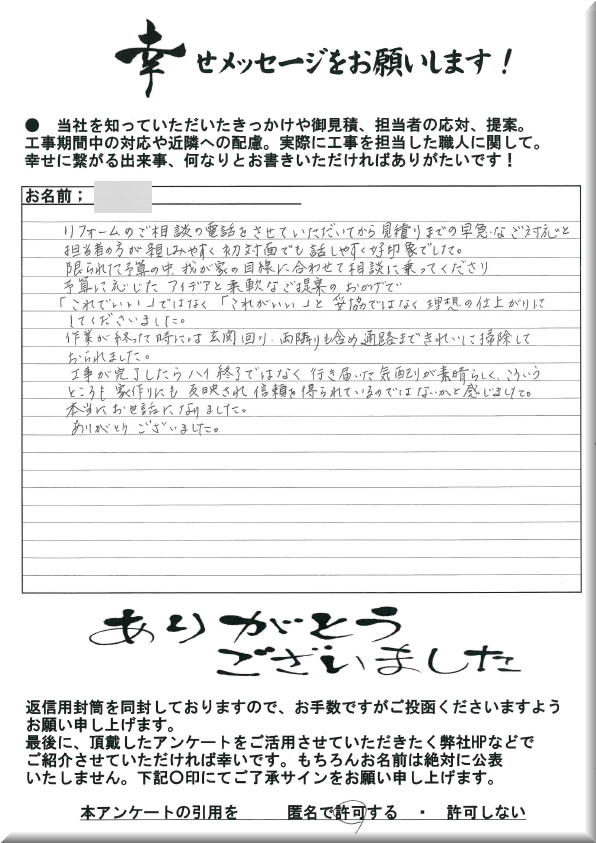 幸せメッセージをお願いします！
● 当社を知っていただいたきっかけや御見積、担当者の応対、提案。
工事期間中の対応や近隣への配慮。実際に工事を担当した職人に関して。
幸せに繋がる出来事、何なりとお書きいただければありがたいです！
お名前；
リフォームのご相談の電話をさせていただいてから見積りまでの早急なご対応と
担当者の方が親しみやすく初対面でも話しやすく好印象でした。
限られた予算の中、我が家の目線に合わせて相談に乗ってくださり
予算に応じたアイデアと柔軟なご提案のおかげで
「これでいい」ではなく「これがいい」と妥協ではなく理想の仕上がりに
してくださいました。
作業が終った時には玄関回り、両隣りも含め通路まできれいに掃除して
おられました。
工事が完了したらハイ終了ではなく行き届いた気配りが素晴らしく、こういう
ところも家作りにも反映され信頼を得られているのではないかと感じました。
本当にお世話になりました。
ありがとうございました。
ありがとう
ございました
返信用封筒を同封しておりますので、お手数ですがご投函くださいますよう
お願い申し上げます。
最後に、頂戴したアンケートをご活用させていただきたく弊社HPなどで
ご紹介させていただければ幸いです。もちろんお名前は絶対に公表
いたしません。下記〇印にてご了承サインをお願い申し上げます。
本アンケートの引用を 匿名で許可する ・ 許可しない